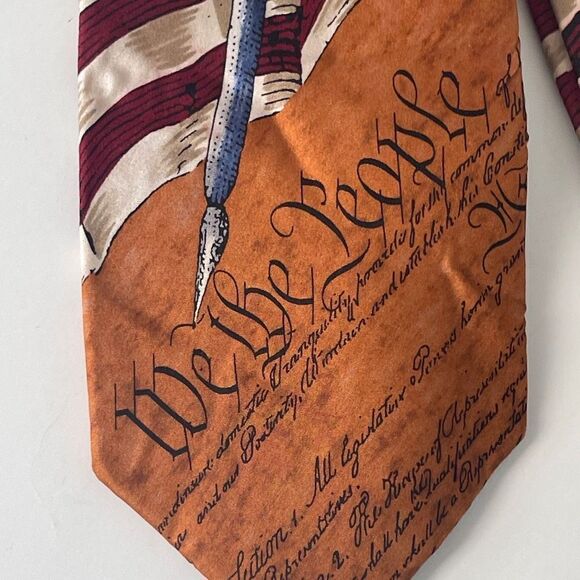 We the People of
domestic Tranquility, provide for the common
and our Posterity, Wo ordain and establish this Constit
Section 1. All legislative Powers herein gran
Representatives.
2. The House of Representati
shall have Qualifications requi
shall be a Representat